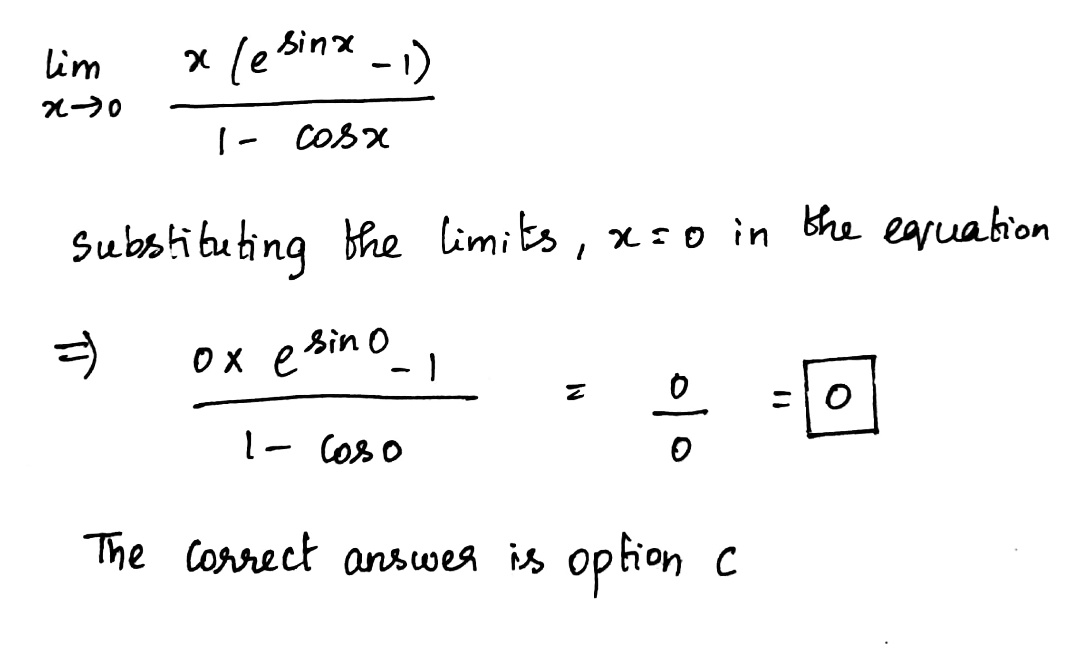 lim x→0 x (e^sinx - 1) / 1 - cosx
substituting the limits, x = 0 in the equation
⇒ 0 x e^sin 0 - 1 / 1 - cos 0 = 0/0 = 0
The correct answer is option C